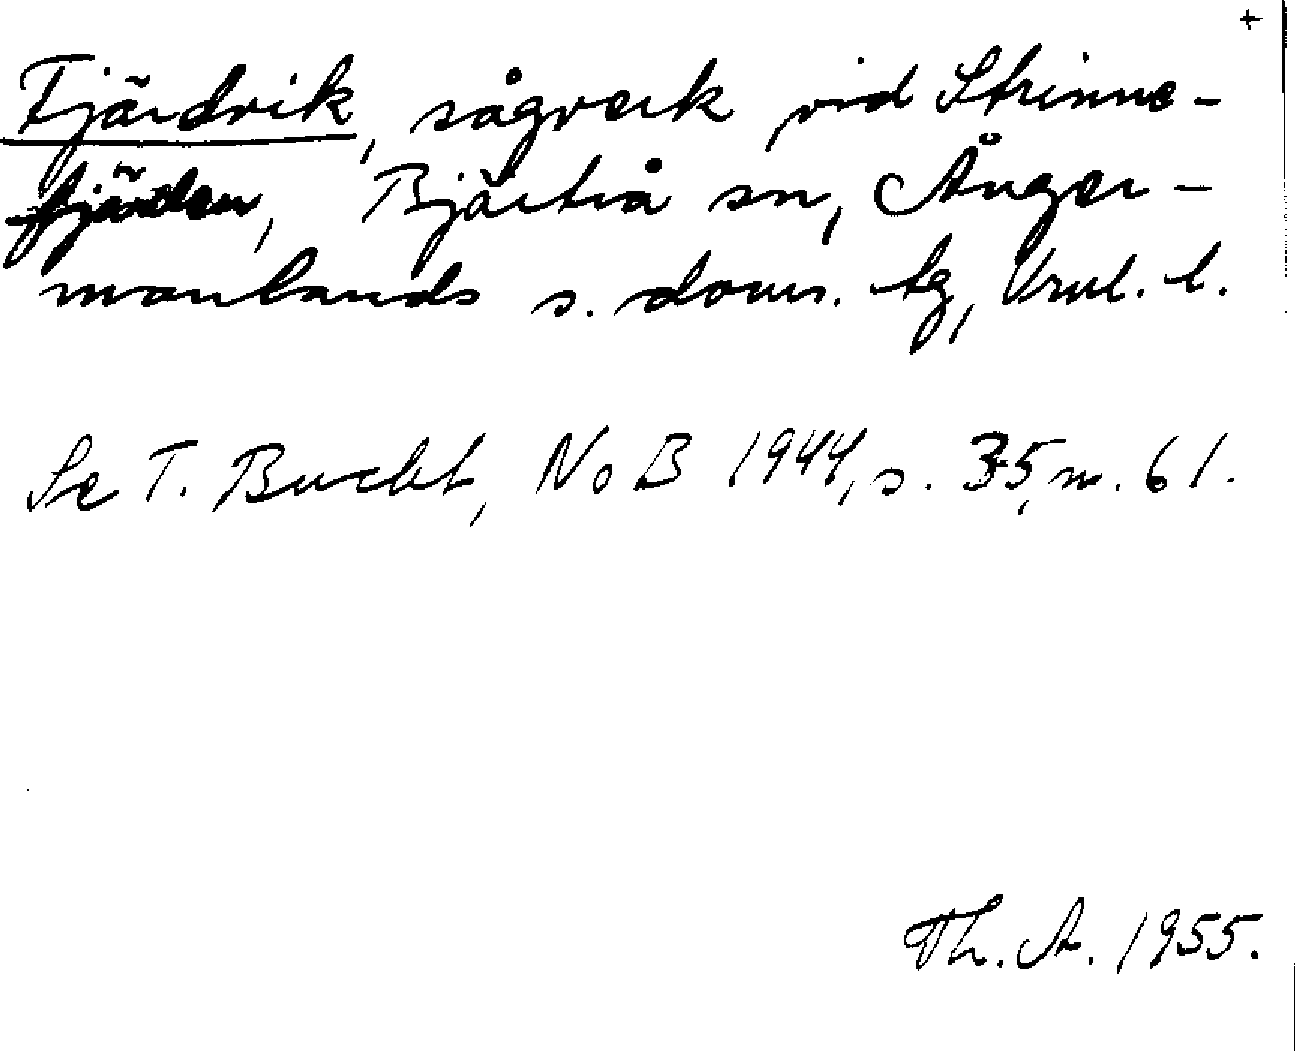 +
Fjärdvik, sågverk vid Strinne-
fjärden, Bjärtrå sn, Ånger-
manlands s. doms. tg, Vrnl. l.
Se T. Bucht, NoB 1944, s. 35, m. 61.
Th. A. 1955.